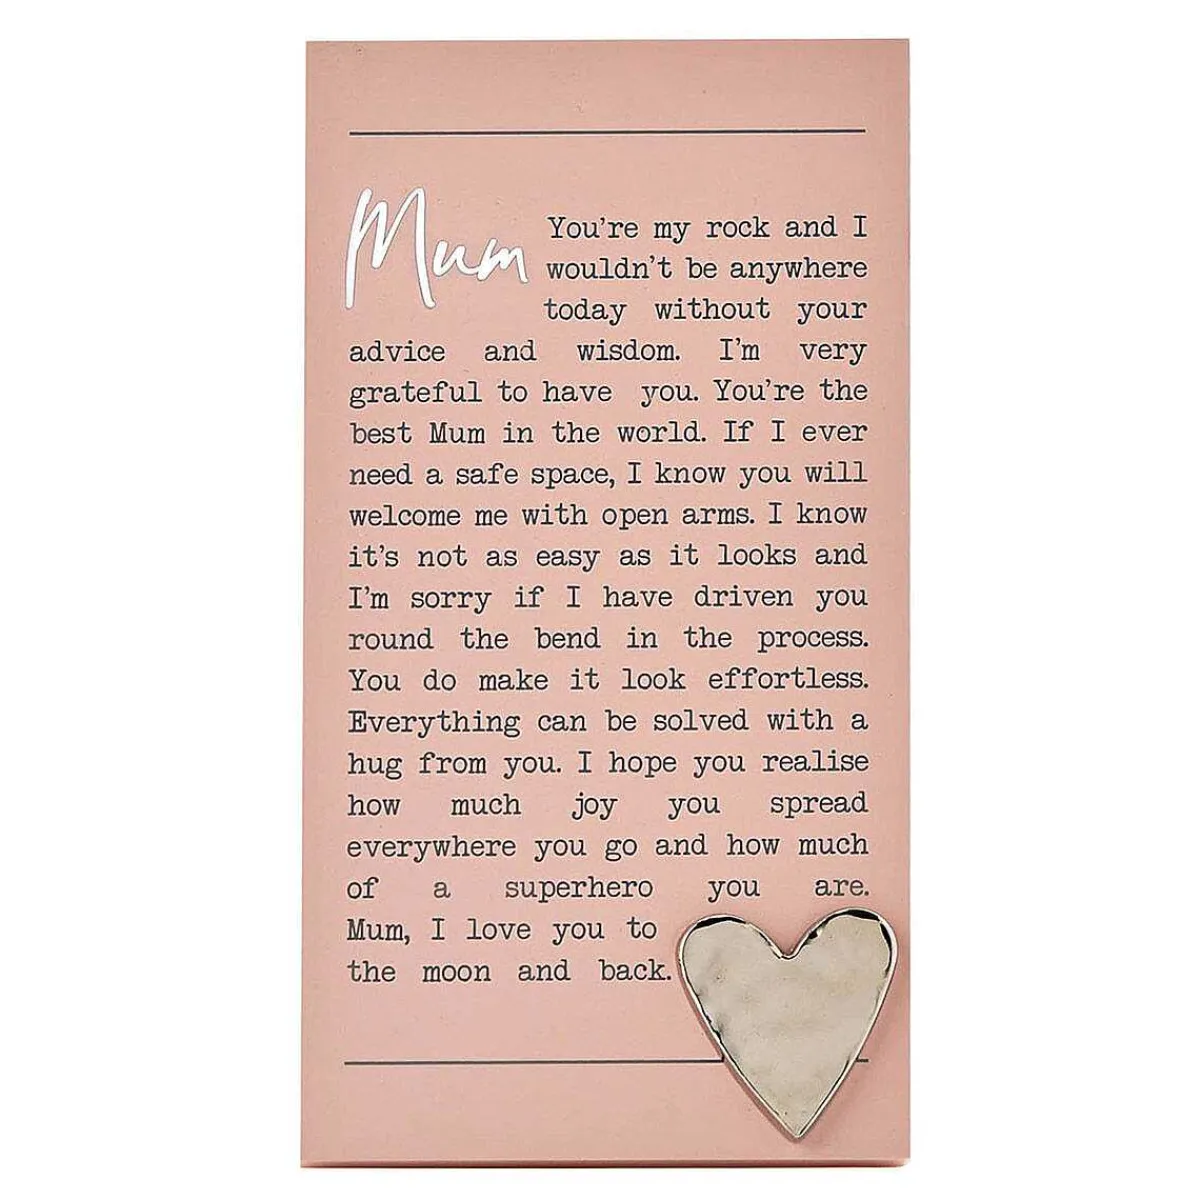 Mum
You're my rock and I
wouldn't be anywhere
today without your
advice and wisdom. I'm very
grateful to have you. You're the
best Mum in the world. If I ever
need a safe space, I know you will
welcome me with open arms. I know
it's not as easy as it looks and
I'm sorry if I have driven you
round the bend in the process.
You do make it look effortless.
Everything can be solved with a
hug from you. I hope you realise
how much joy you spread
everywhere you go and how much
of a superhero you are.
Mum, I love you to
the moon and back.